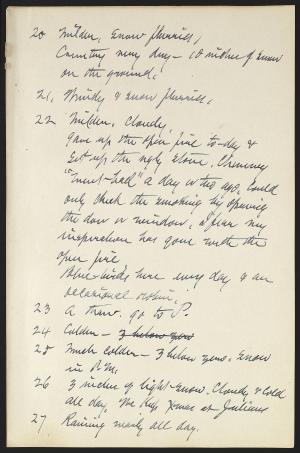 20 Milder, Snow flurries,
Country very dreary - 10 inches of Snow
on the ground.
21, Windy & snow flurries,
22 Milder, Cloudy,
Gave up the open fire to-day &
Set up the ugly stove. Chimney
"went-back" a day or two ago, could
only check the smoking by opening
the door or window, I fear my
inspiration has gone with the
open fire
Blue-birds here every day & an
occasional robin.
23 A thaw. go to P.
24 Colder - 3 below zero
25 Much colder - 3 below zero, Snow
in P.M.
26 3 inches of light snow. Cloudy & cold
all day. We Keep Xmas at Julians
27 Raining nearly all day.